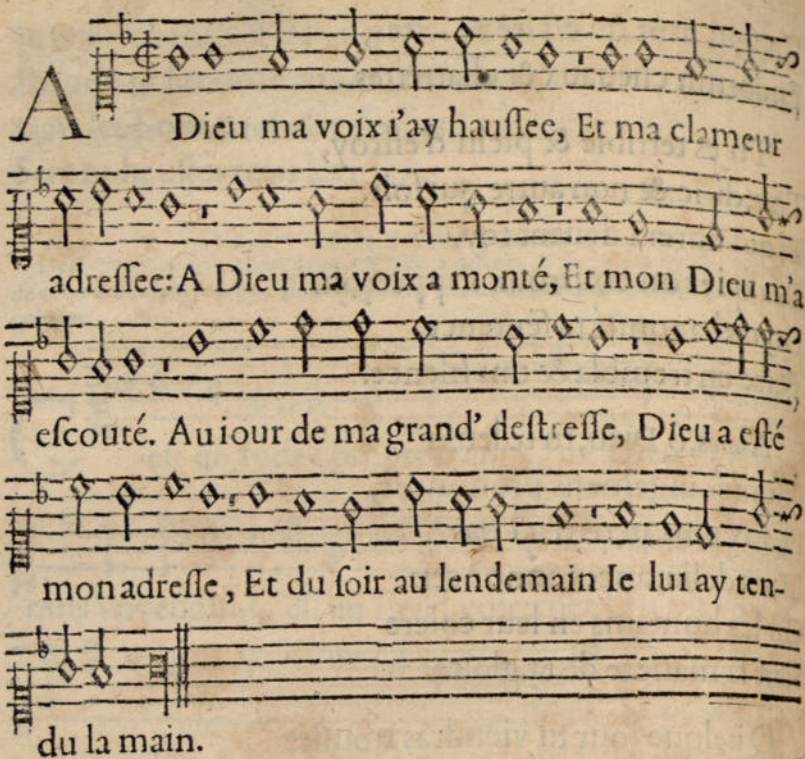 A Dieu ma voix i'ay haussee, Et ma clameur
adressee: A Dieu ma voix a monté, Et mon Dieu m'a
escouté. Au iour de ma grand' destresse, Dieu a esté
mon adresse, Et du soir au lendemain Ie lui ay ten-
du la main.